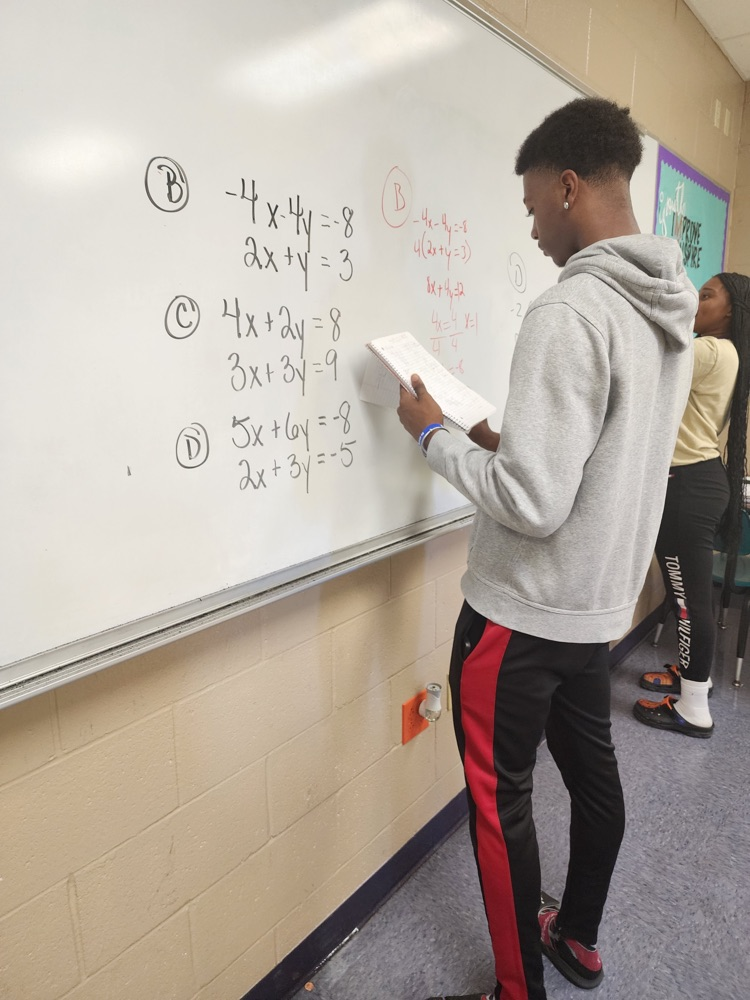 B
-4x-4y=-8
2x+y=3
C
4x+2y=8
3x+3y=9
D
5x+6y=-8
2x+3y=-5
B
-4x-4y=-8
4(2x+y=3)
8x+4y=12
4x=4 x=1
4 4
=-8
D
-2
IMPROVE
TOMMY HILFIGER